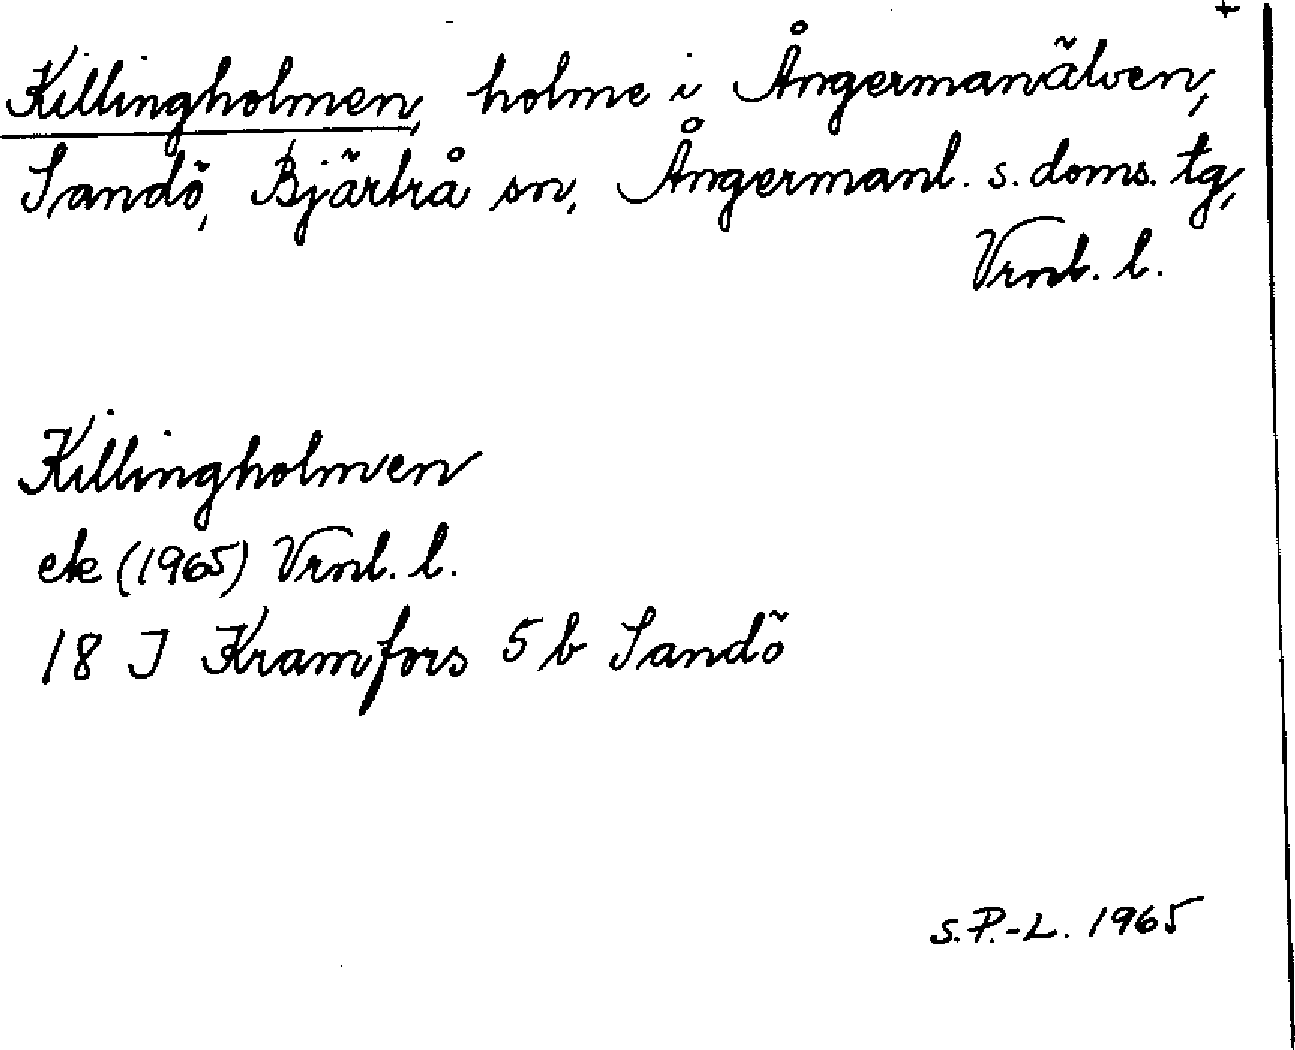 +
Killingholmen, holme i Ångermanälven,
Sandö, Bjärtrå sn, Ångermanl. s. doms. tg,
Vrnl. l.
Killingholmen
ek (1965) Vrnl. l.
18 J Kramfors 5 b Sandö
S.P.-L. 1965